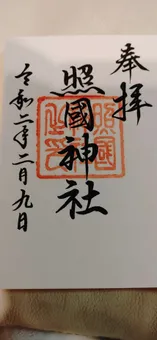 奉拝
照國神社
令和二年二月九日